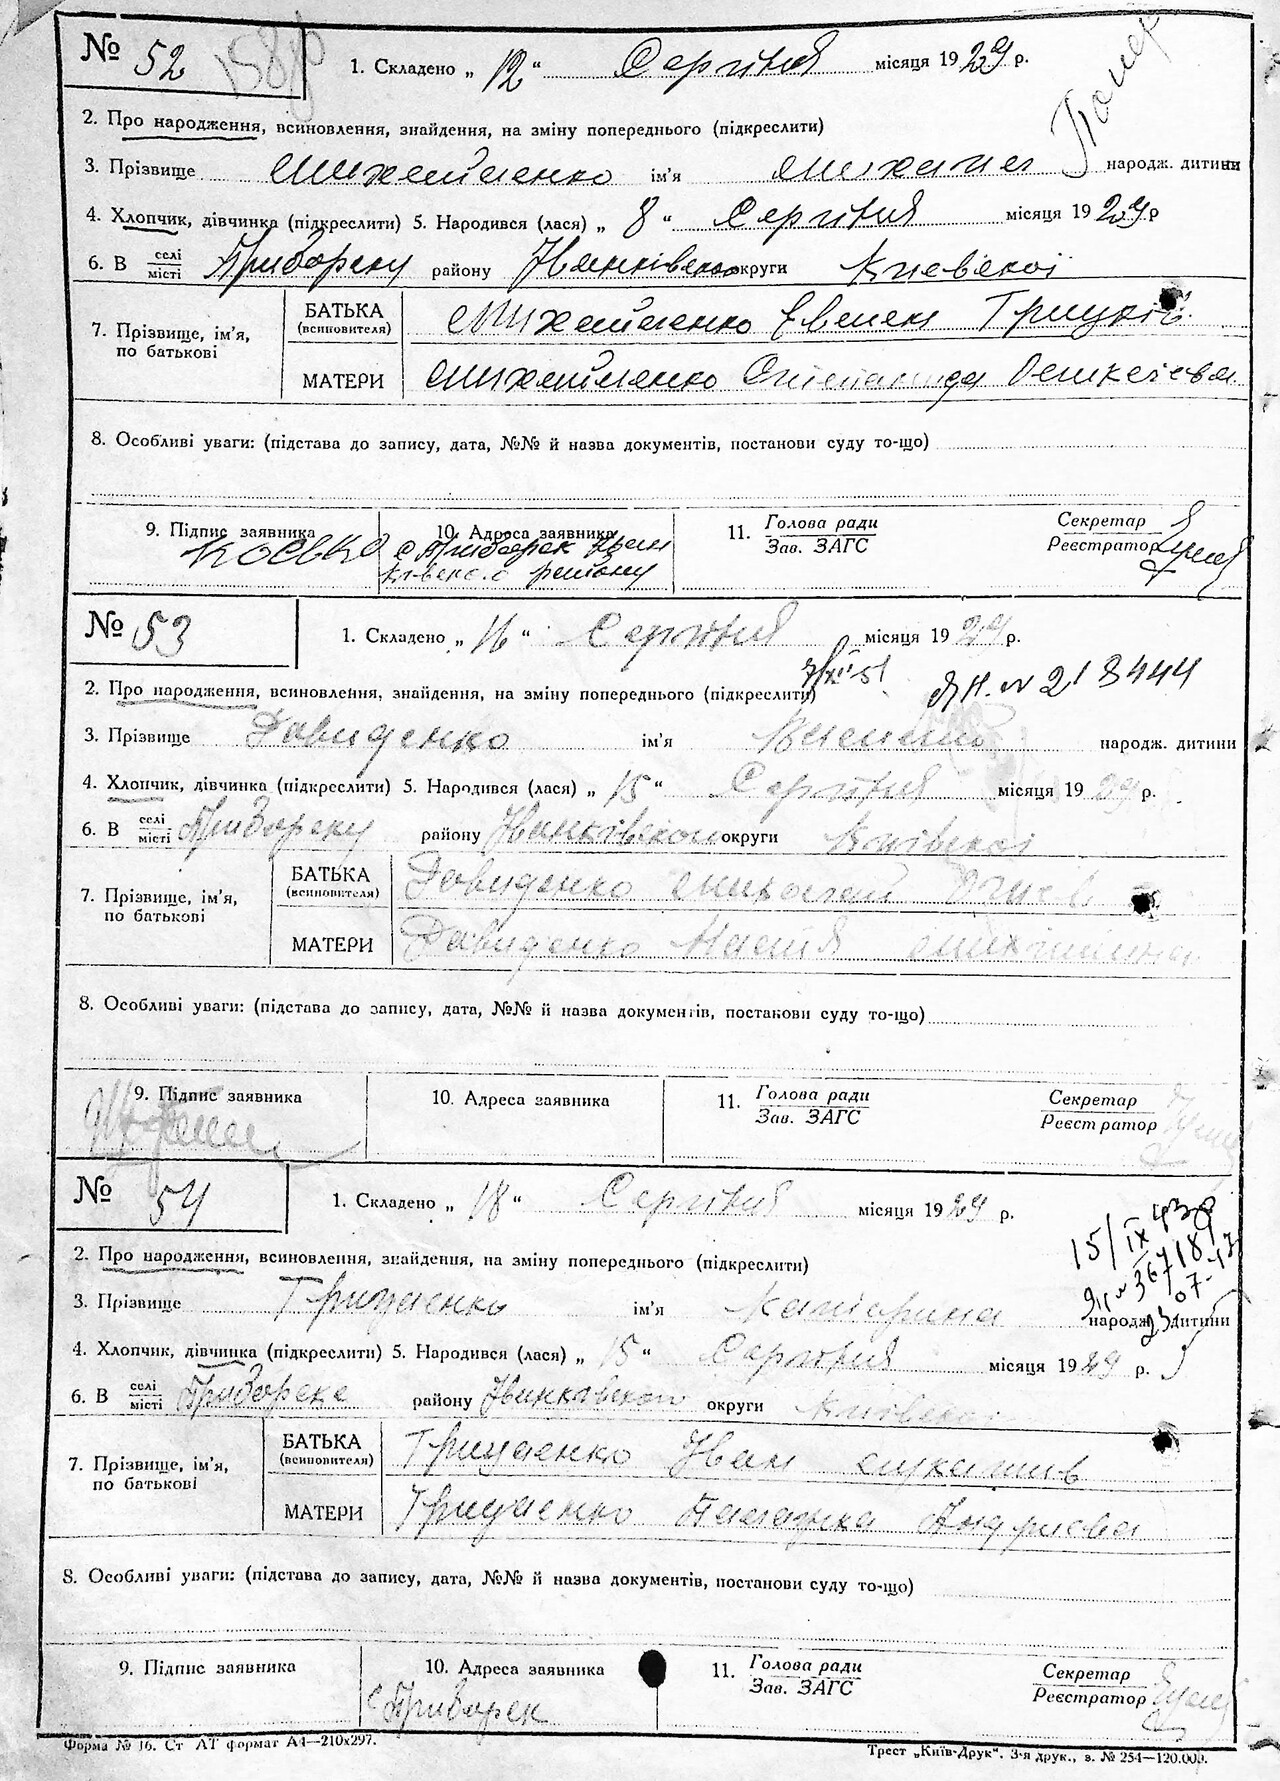 № 52 1. Складено „ 12 “ Серпня місяця 1929 р.
Помер
2. Про народження, всиновлення, знайдення, на зміну попереднього (підкреслити)
3. Прізвище Михайленко ім'я Михаил народж. дитини
4. Хлопчик, дівчинка (підкреслити) 5. Народився (лася) „ 8 “ Серпня місяця 1929 р
6. В селі/місті Приборску району Іванківського округи Киевскої
7. Прізвище, ім'я, по батькові
БАТЬКА (всиновителя) Михайленко
МАТЕРИ Михайленко
8. Особливі уваги: (підстава до запису, дата, №№ й назва документів, постанови суду то-що)
9. Підпис заявника 10. Адреса заявника 11. Голова ради Секретар
Зав. ЗАГС Реєстратор
с Приборск Іван
ківского району
№ 53 1. Складено „ 16 “ Серпня місяця 1929 р.
2. Про народження, всиновлення, знайдення, на зміну попереднього (підкреслити)
3. Прізвище Давиденко ім'я народж. дитини
4. Хлопчик, дівчинка (підкреслити) 5. Народився (лася) „ 15 “ Серпня місяця 1929 р.
6. В селі/місті Приборску району Іванківскои округи Київскоі
7. Прізвище, ім'я, по батькові
БАТЬКА (всиновителя) Давиденко Миколай
МАТЕРИ Давиденко
8. Особливі уваги: (підстава до запису, дата, №№ й назва документів, постанови суду то-що)
9. Підпис заявника 10. Адреса заявника 11. Голова ради Секретар
Зав. ЗАГС Реєстратор
№ 54 1. Складено „ 18 “ Серпня місяця 1929 р.
2. Про народження, всиновлення, знайдення, на зміну попереднього (підкреслити)
3. Прізвище Гриценко ім'я Катерина народж. дитини
4. Хлопчик, дівчинка (підкреслити) 5. Народився (лася) „ 15 “ Серпня місяця 1929 р.
6. В селі/місті Приборске району Іванківскои округи Київскоі
7. Прізвище, ім'я, по батькові
БАТЬКА (всиновителя) Гриценко Іван
МАТЕРИ Гриценко Палажка Андрієва
8. Особливі уваги: (підстава до запису, дата, №№ й назва документів, постанови суду то-що)
9. Підпис заявника 10. Адреса заявника 11. Голова ради Секретар
Зав. ЗАГС Реєстратор
с Приборск
Форма № 16. Ст АТ формат А4—210х297. Трест „Київ-Друк“. 3-я друк., з. № 254—120.000.